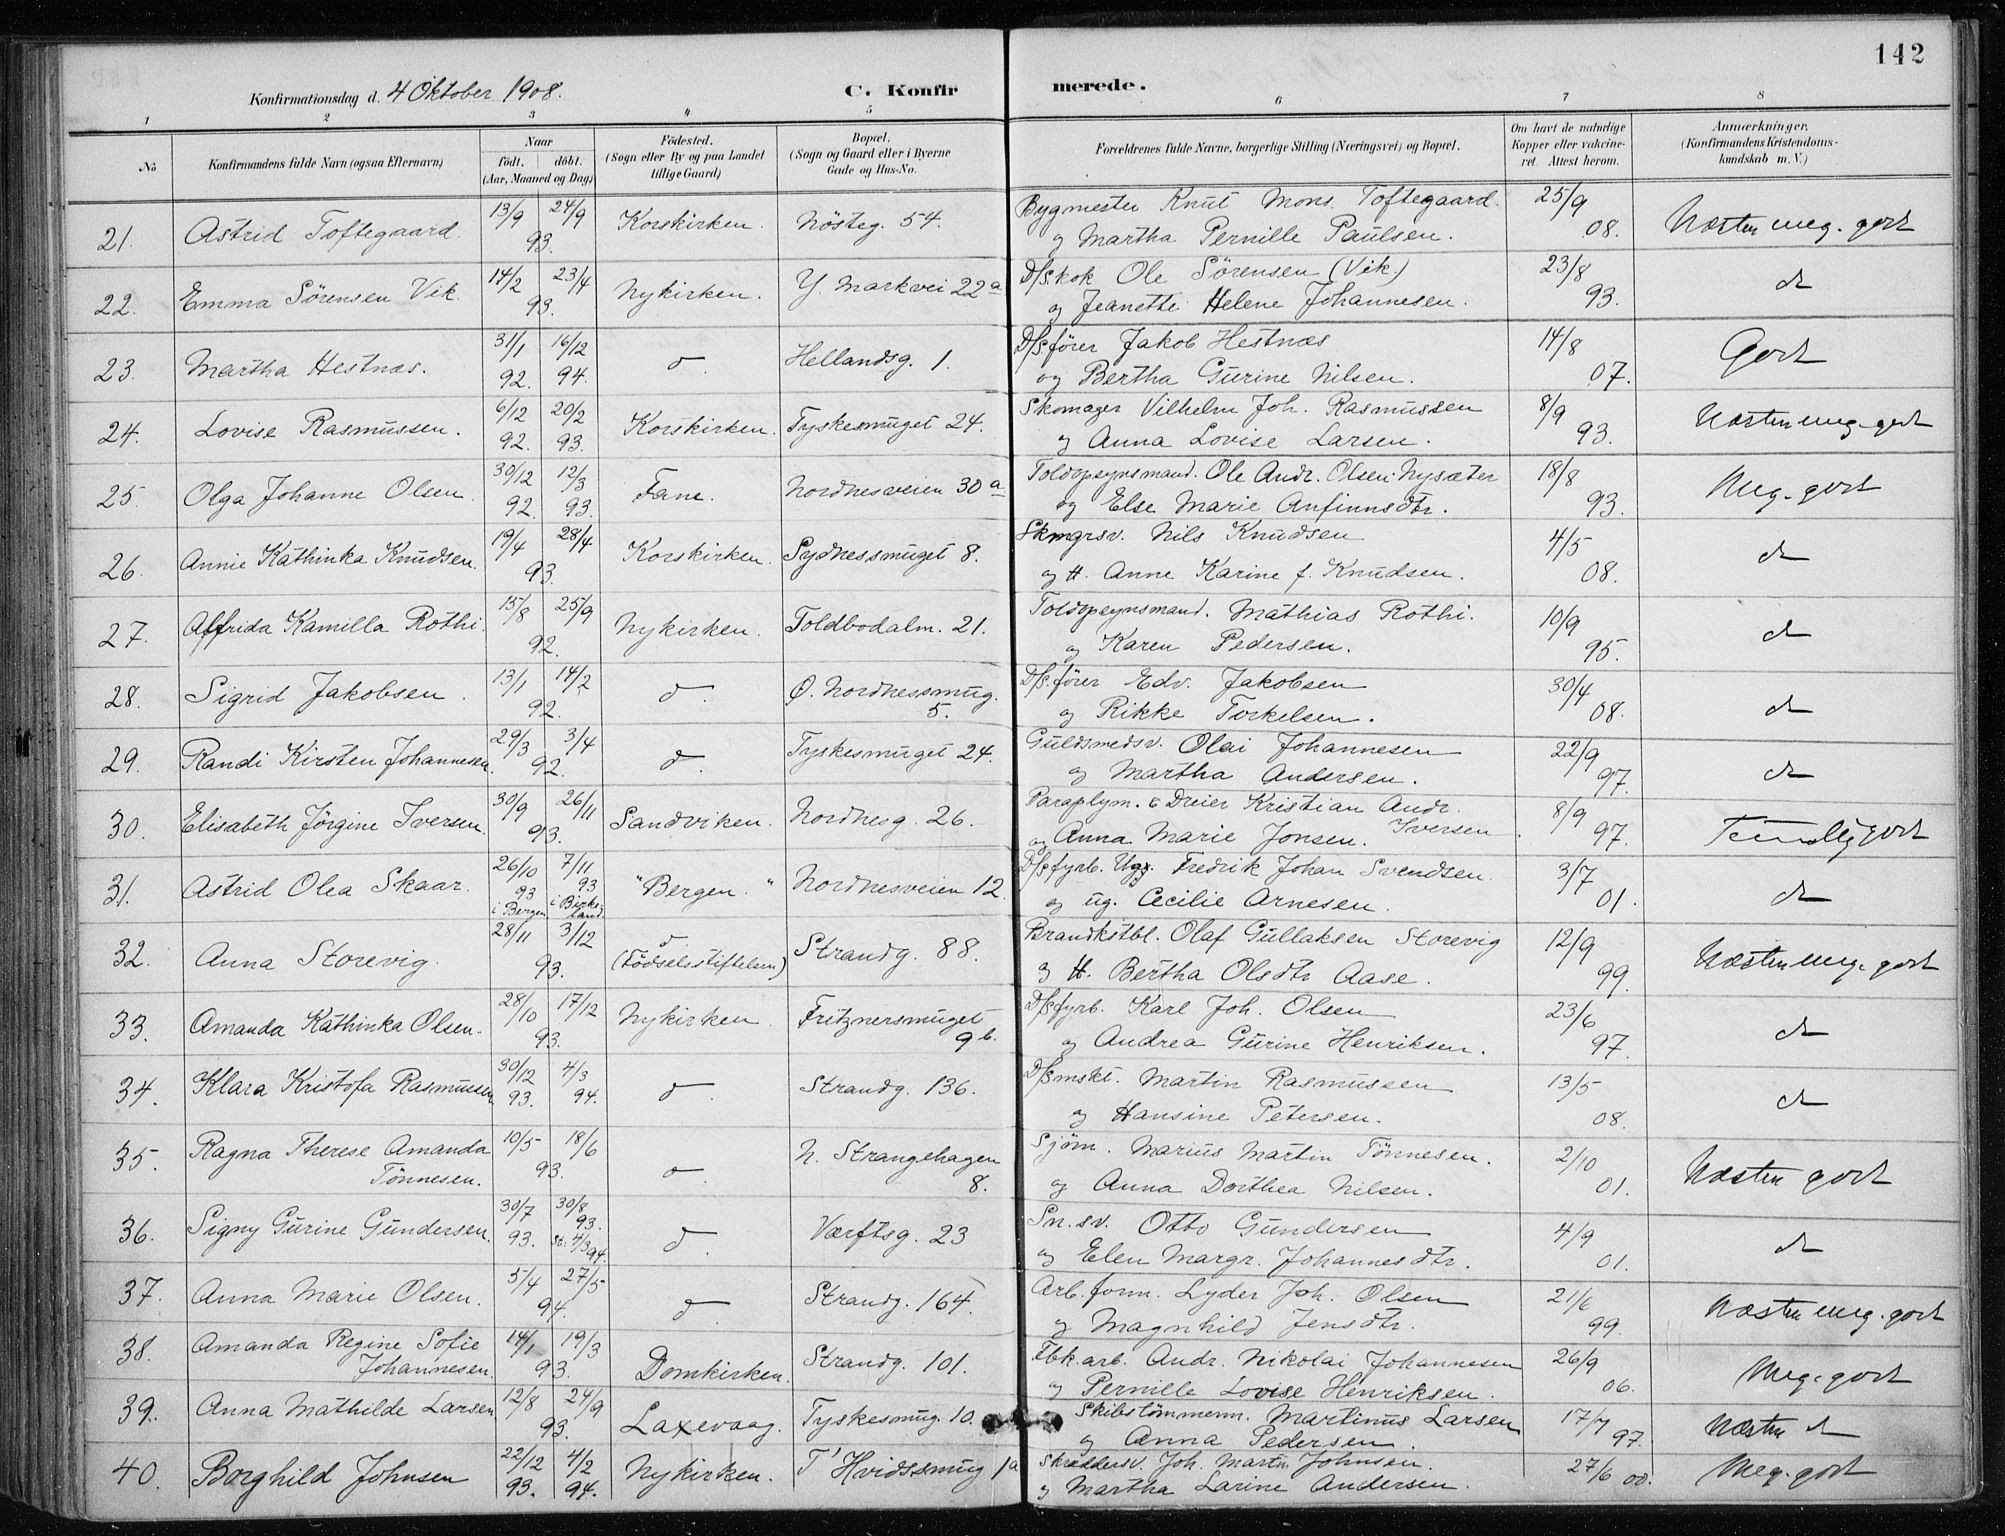 142
Konfirmationsdag d. 4 Oktober 1908. C. Konfirmerede.
1 2 3 4 5 6 7 8
No. Konfirmandens fulde Navn (ogsaa Efternavn) Naar födt. döbt. (Aar, Maaned og Dag) Födested. (Sogn eller By og paa Landet tillige Gaard) Bopæl. (Sogn og Gaard eller i Byerne Gade og Hus-No. Forældrenes fulde Navne, borgerlige Stilling (Næringsvei) og Bopæl. Om havt de naturlige Kopper eller vakcineret. Attest herom. Anmærkninger. (Konfirmandens Kristendomskundskab m. V.)
21. Astrid Toftegaard. 13/9 24/9 93. Korskirken. Nösteg. 54. Bygmester Knut Mons Toftegaard. 25/9 08. Næsten meg. godt
og Martha Pernille Paulsen.
22. Emma Sörensen Vik. 14/2 23/4 93. Nykirken. Y. Markvei 22a D/S.kok Ole Sörensen (Vik.) 23/8 93. do
og Jeanette Helene Johannesen.
23. Martha Hestnæs. 31/1 92. 16/12 94. do. Hellandsg. 1. D/S förer Jakob Hestnæs 14/8 07. Godt
og Bertha Gurine Nilsen.
24. Lovise Rasmussen. 6/12 92. 20/2 93. Korskirken. Tyskesmuget 24. Skomager Vilhelm Joh. Rasmussen 8/9 93. Næsten meg. godt
og Anna Lovise Larsen.
25. Olga Johanne Olsen. 30/12 92. 12/3 93. Fane. Nordnesveien 30a Toldopsynsmand. Ole Andr. Olsen Nysæter 18/8 93. Meg. godt
og Else Marie Anfinnsdtr.
26. Annie Kathinka Knudsen. 19/4 28/4 93. Korskirken. Sydnessmuget 8. Skmgrsv. Nils Knudsen 4/5 08. do
og H. Anne Karine f. Knudsen.
27. Alfrida Kamilla Rothi. 15/8 25/9 92. Nykirken. Toldbodalm. 21. Toldopsynsmand. Mathias Rothi. 10/9 95. do
og Karen Pedersen.
28. Sigrid Jakobsen. 13/1 14/2 92. do. Ø. Nordnessmug. 5. D/S.förer Edv. Jakobsen 30/4 08. do
og Rikke Torkelsen.
29. Randi Kirsten Johannesen. 29/3 3/4 92. do. Tyskesmuget 24. Guldsmedsv. Olai Johannesen 22/9 97. do
og Martha Andersen.
30. Elisabeth Jörgine Iversen. 30/9 26/11 93. Sandviken. Nordnesg. 26. Paraplym. & Dreier Kristian Andr. Iversen 8/9 97. Temelig godt
og Anna Marie Jonsen.
31. Astrid Olea Skaar. 26/10 93 i Bergen 7/11 93 i Birkeland. "Bergen." Nordnesveien 12 D/Sfyrb. Ugf. Fredrik Johan Svendsen. 3/7 01. do
og ug. Cecilie Arnesen.
32. Anna Storevig. 28/11 3/12 93. do. (Födselsstiftelsen) Strandg. 88. Brandkstbl. Olaf Gullaksen Storevig 12/9 99. Næsten meg. godt
og H. Bertha Olsdtr Aase.
33. Amanda Kathinka Olsen. 28/10 17/12 93. Nykirken. Fritznersmuget 9b. D/Sfyrb. Karl Joh. Olsen 23/6 97. do
og Andrea Gurine Henriksen.
34. Klara Kristofa Rasmussen. 30/12 93. 4/3 94. do. Strandg. 136. D/Smskt. Martin Rasmussen 13/5 08. do
og Hansine Petersen.
35. Ragna Therese Amanda Tönnesen. 10/5 18/6 93. do N. Strangehagen 8. Sjöm. Marius Martin Tönnesen. 2/10 01. Næsten godt
og Anna Dorthea Nilsen.
36. Signy Gurine Gundersen. 30/7 93. 30/8 93. St: 4/3 94. do. Værftsg. 23 Sn.sv. Otto Gundersen 4/9 01. do
og Elen Margr. Johannesdtr.
37. Anna Marie Olsen. 5/4 27/5 94. do. Strandg. 164. Arb.form. Lyder Joh. Olsen 21/6 99. Næsten meg. godt
og Magnhild Jensdtr.
38. Amanda Regine Sofie Johannesen. 14/1 19/3 93. Domkirken. Strandg. 101. Fbk.arb. Andr. Nikolai Johannesen 26/9 06. Meg. godt
og Pernille Lovise Henriksen.
39. Anna Mathilde Larsen 12/8 24/9 93. Laxevaag. Tyskesmug. 10. Skibstömmerm. Martinus Larsen 17/7 97. Næsten do
og Anna Pedersen.
40. Borghild Johnsen 22/12 93. 4/2 94. Nykirken. T' Hvidssmug 1a Skræddersv. Joh. Martin Johnsen. 27/6 00. Meg. godt
og Martha Larine Andersen.